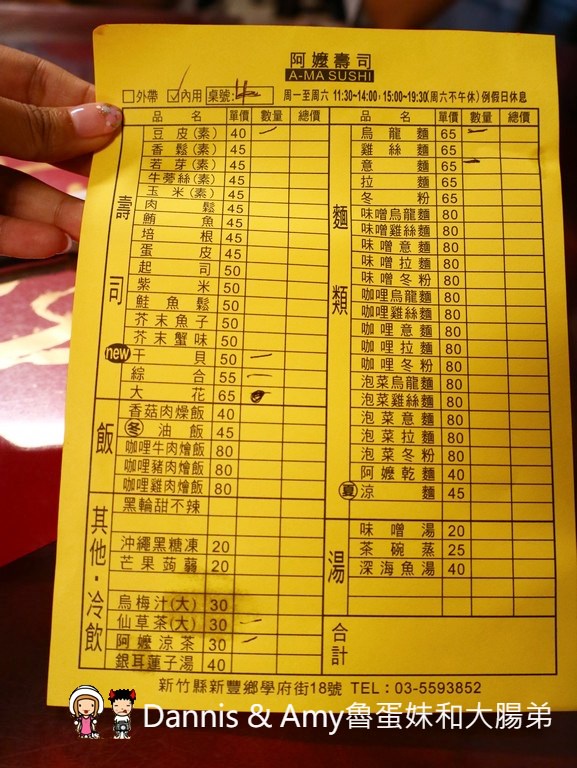 阿嬤壽司
A-MA SUSHI
□外帶 ☑內用 桌號: 周一至周六 11:30~14:00;15:00~19:30(周六不午休)例假日休息
品名 單價 數量 總價
壽司
豆皮(素) 40 一
香鬆(素) 45
若芽(素) 45
牛蒡絲(素) 45
玉米(素) 45
肉鬆 45
鮪魚 45
培根 45
蛋皮 45
起司 50
紫米 50
鮭魚鬆 50
芥末魚子 50
芥末蟹味 50
new 干貝 50 一
綜合 55 一
大花 65
飯
香菇肉燥飯 40
冬 油飯 45
咖哩牛肉燴飯 80
咖哩豬肉燴飯 80
咖哩雞肉燴飯 80
其他・冷飲
黑輪甜不辣
沖繩黑糖凍 20
芒果蒟蒻 20
烏梅汁(大) 30
仙草茶(大) 30 一
阿嬤涼茶 30 一
銀耳蓮子湯 40
品名 單價 數量 總價
麵類
烏龍麵 65 一
雞絲麵 65
意麵 65 一
拉麵 65
冬粉 65
味噌烏龍麵 80
味噌雞絲麵 80
味噌意麵 80
味噌拉麵 80
味噌冬粉 80
咖哩烏龍麵 80
咖哩雞絲麵 80
咖哩意麵 80
咖哩拉麵 80
咖哩冬粉 80
泡菜烏龍麵 80
泡菜雞絲麵 80
泡菜意麵 80
泡菜拉麵 80
泡菜冬粉 80
阿嬤乾麵 40
夏 涼麵 45
湯
味噌湯 20
茶碗蒸 25
深海魚湯 40
合計
新竹縣新豐鄉學府街18號 TEL:03-5593852
Dannis & Amy魯蛋妹和大腸弟